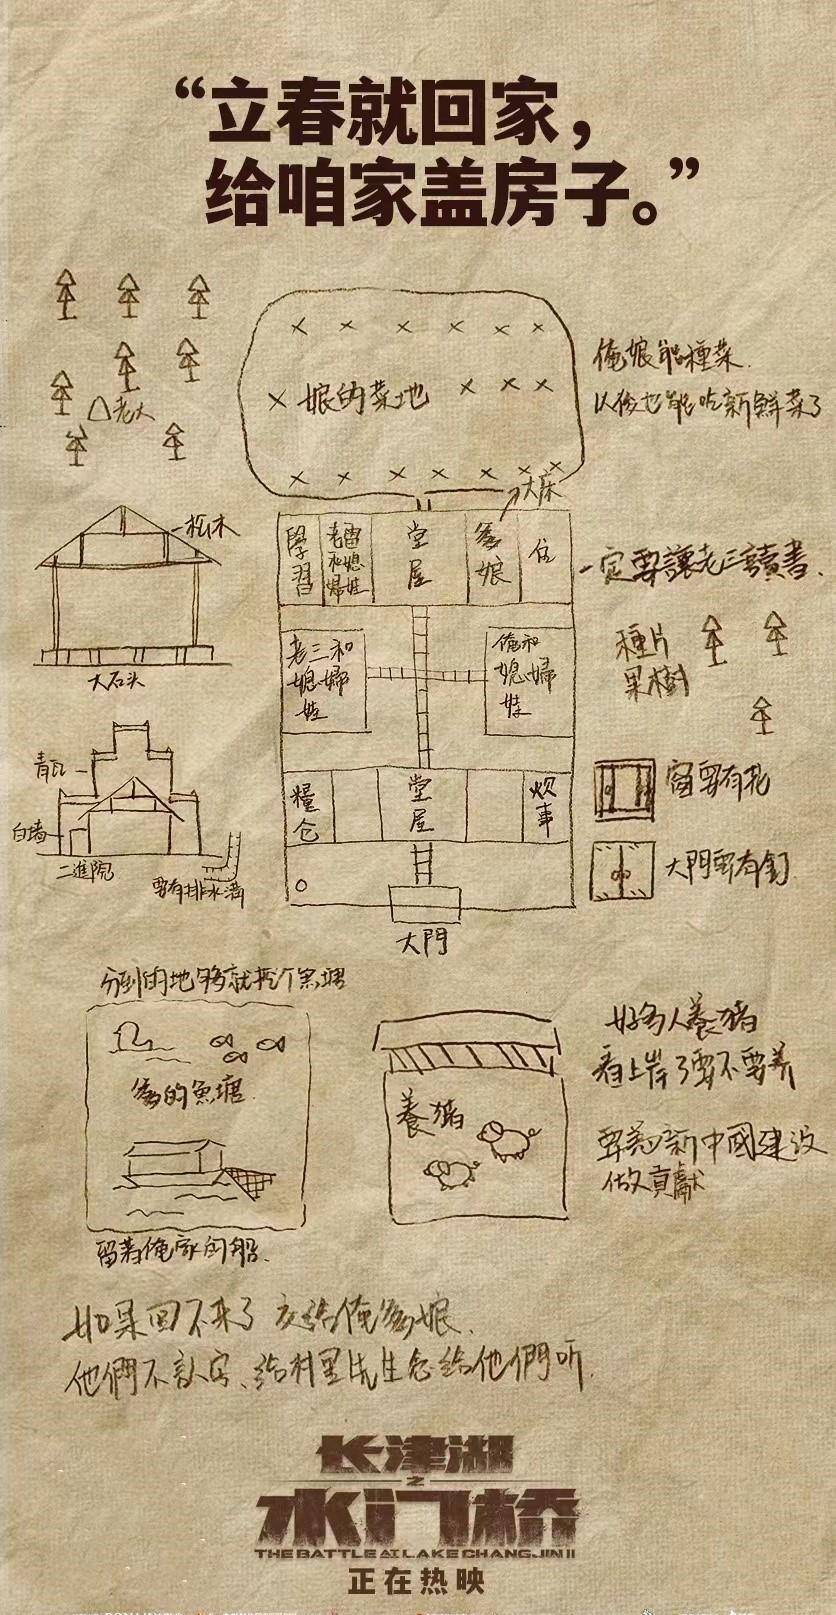 “立春就回家，
给咱家盖房子。”
老大
娘的菜地
俺娘能種菜
以後也能吃新鮜菜了
大床
松木
大石头
學習
堂屋
爹娘
住
一定要讓老三讀書
老三和媳婦娃
俺和媳婦娃
種片
果樹
青瓦
白墙
二進院
要有排水溝
糧仓
堂屋
炊事
窗要有花
大門要有釘
大門
分到的地够就挖个魚塘
爹的魚塘
留着俺家的船
養猪
好多人養猪
看上岸了要不要养
要為新中國建設
做貢獻
如果回不来了 交给俺爹娘
他們不認字、给村里先生念给他們听
长津湖
之
水门桥
THE BATTLE AT LAKE CHANGJIN II
正在热映